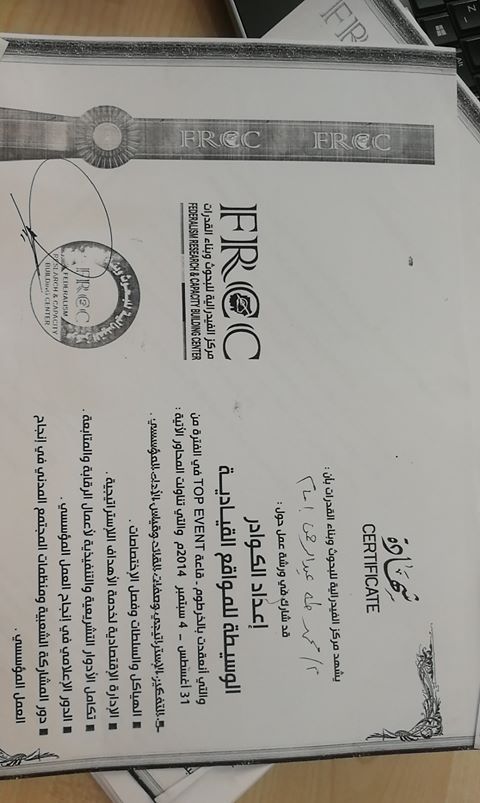 شهادة
CERTIFICATE
يشهد مركز الفيدرالية للبحوث وبناء القدرات بأن :
م/ محمد طه عبدالرحمن إمام
قد شارك في ورشة عمل حول :
إعداد الكوادر
الوسيطة للمواقع القيادية
والتي أنعقدت بالخرطوم - قاعة TOP EVENT في الفترة من
31 أغسطس - 4 سبتمبر 2014م والتي تناولت المحاور الأتية :
التفكير الإستراتيجي وصفات القائد وقياس الأداء المؤسسي .
الهياكل والسلطات وفصل الإختصاصات .
الإدارة الإقتصادية لخدمة الأهداف اللإستراتيجية .
تكامل الأدوار التشريعية والتنفيذية لأعمال الرقابة والمتابعة .
الدور الإعلامي في إنجاح العمل المؤسسي .
دور المشاركة الشعبية ومنظمات المجتمع المدني في إنجاح
العمل المؤسسي .
FRCC
مركز الفيدرالية للبحوث وبناء القدرات
FEDERALISM RESEARCH & CAPACITY BUILDING CENTER
FRCC
FRCC
مركز الفيدرالية للبحوث وبناء
FRCC
FEDERALISM
RESEARCH & CAPACITY
BUILDING CENTER
FR
Alt